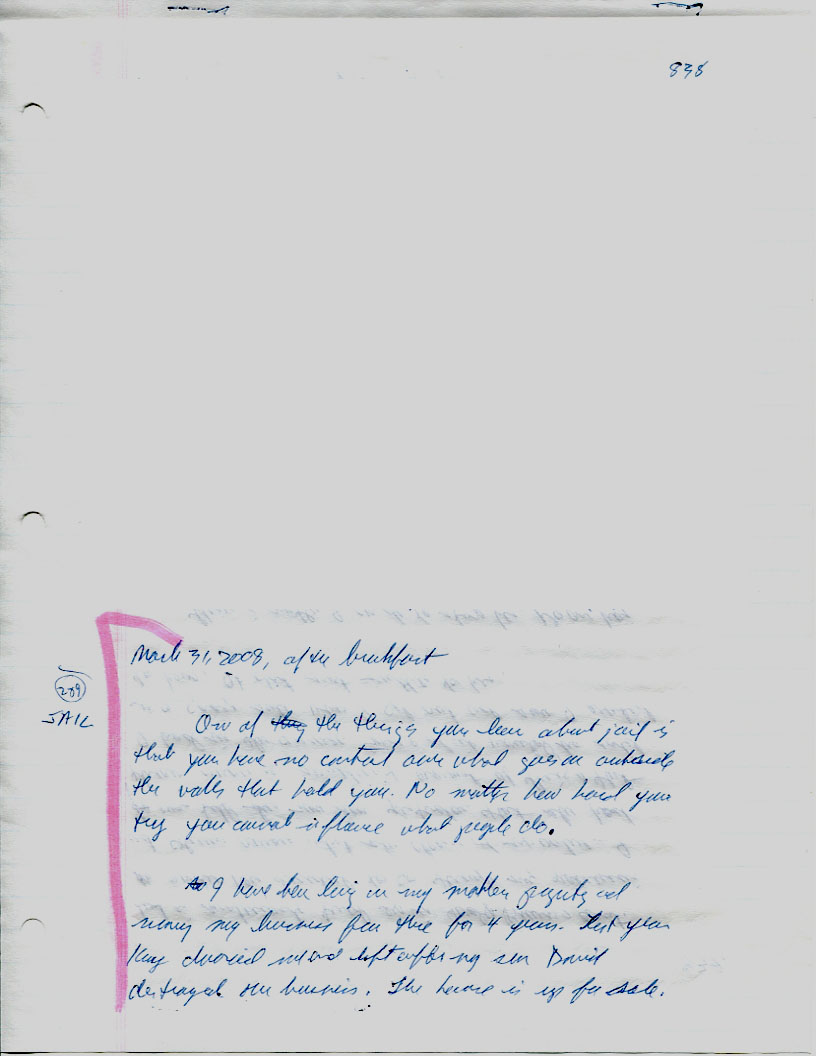 838
March 31, 2008, after breakfast
289
JAIL
One of the things you learn about jail is
that you have no control over what goes on outside
the walls that hold you. No matter how hard you
try you cannot influence what people do.
I have been living in my mother property and
running my business from there for 4 years. Last year
Kay divorced me and left after my son David
destroyed our business. The house is up for sale.